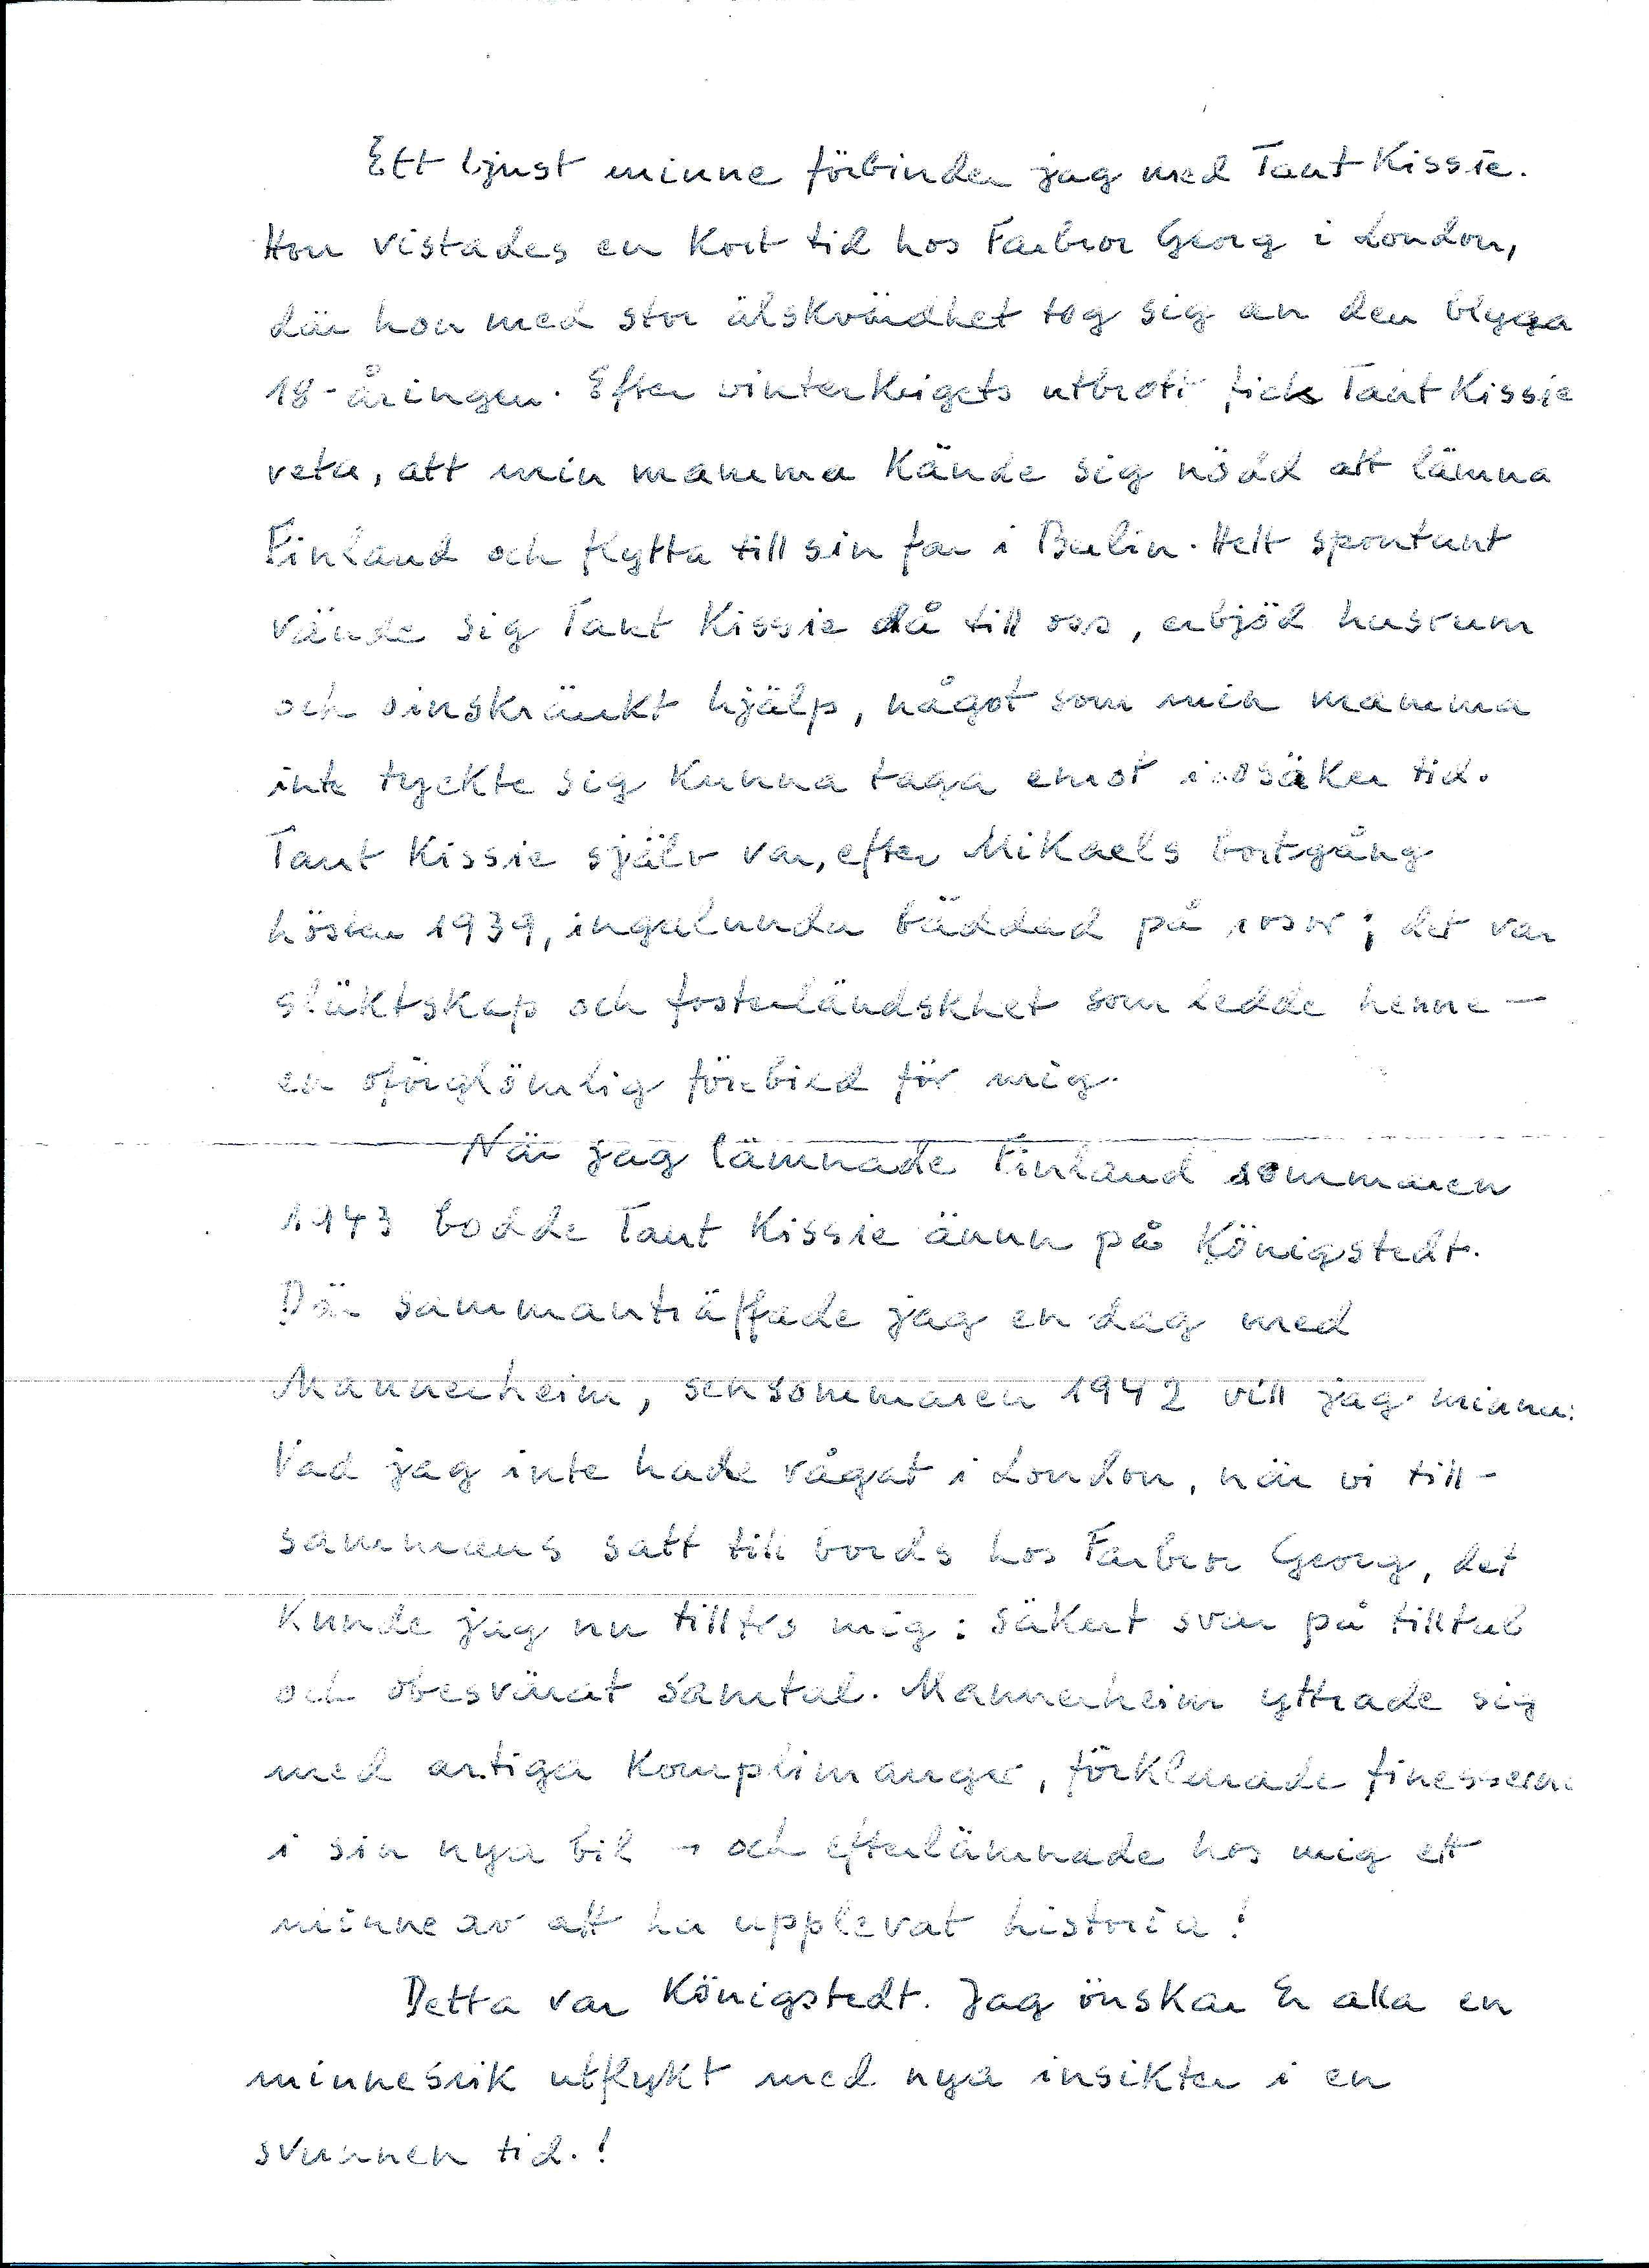 Ett ljust minne förbinder jag med Tant Kissie.
Hon vistades en kort tid hos Farbror Georg i London,
där hon med stor älskvärdhet tog sig an den blyga
18-åringen. Efter vinterkrigets utbrott fick Tant Kissie
veta, att min mamma kände sig nödd att lämna
Finland och flytta till sin far i Berlin. Helt spontant
vände sig Tant Kissie då till oss, erbjöd husrum
och oinskränkt hjälp, något som min mamma
inte tyckte sig kunna taga emot i osäker tid.
Tant Kissie själv var, efter Mikaels bortgång
hösten 1939, ingalunda bäddad på rosor; det var
släktskap och fosterländskhet som ledde henne –
en oförglömlig förebild för mig.
När jag lämnade Finland sommaren
1943 bodde Tant Kissie ännu på Königstedt.
Där sammanträffade jag en dag med
Mannerheim, sensommaren 1942 vill jag minnas:
Vad jag inte hade vågat i London, när vi till-
sammans satt till bords hos Farbror Georg, det
kunde jag nu tilltro mig: säkert svar på tilltal
och obesvärat samtal. Mannerheim yttrade sig
med artiga komplimanger, förklarade finesserna
i sin nya bil – och efterlämnade hos mig ett
minne av att ha upplevat historia!
Detta var Königstedt. Jag önskar Er alla en
minnesrik utflykt med nya insikter i en
svunnen tid.!